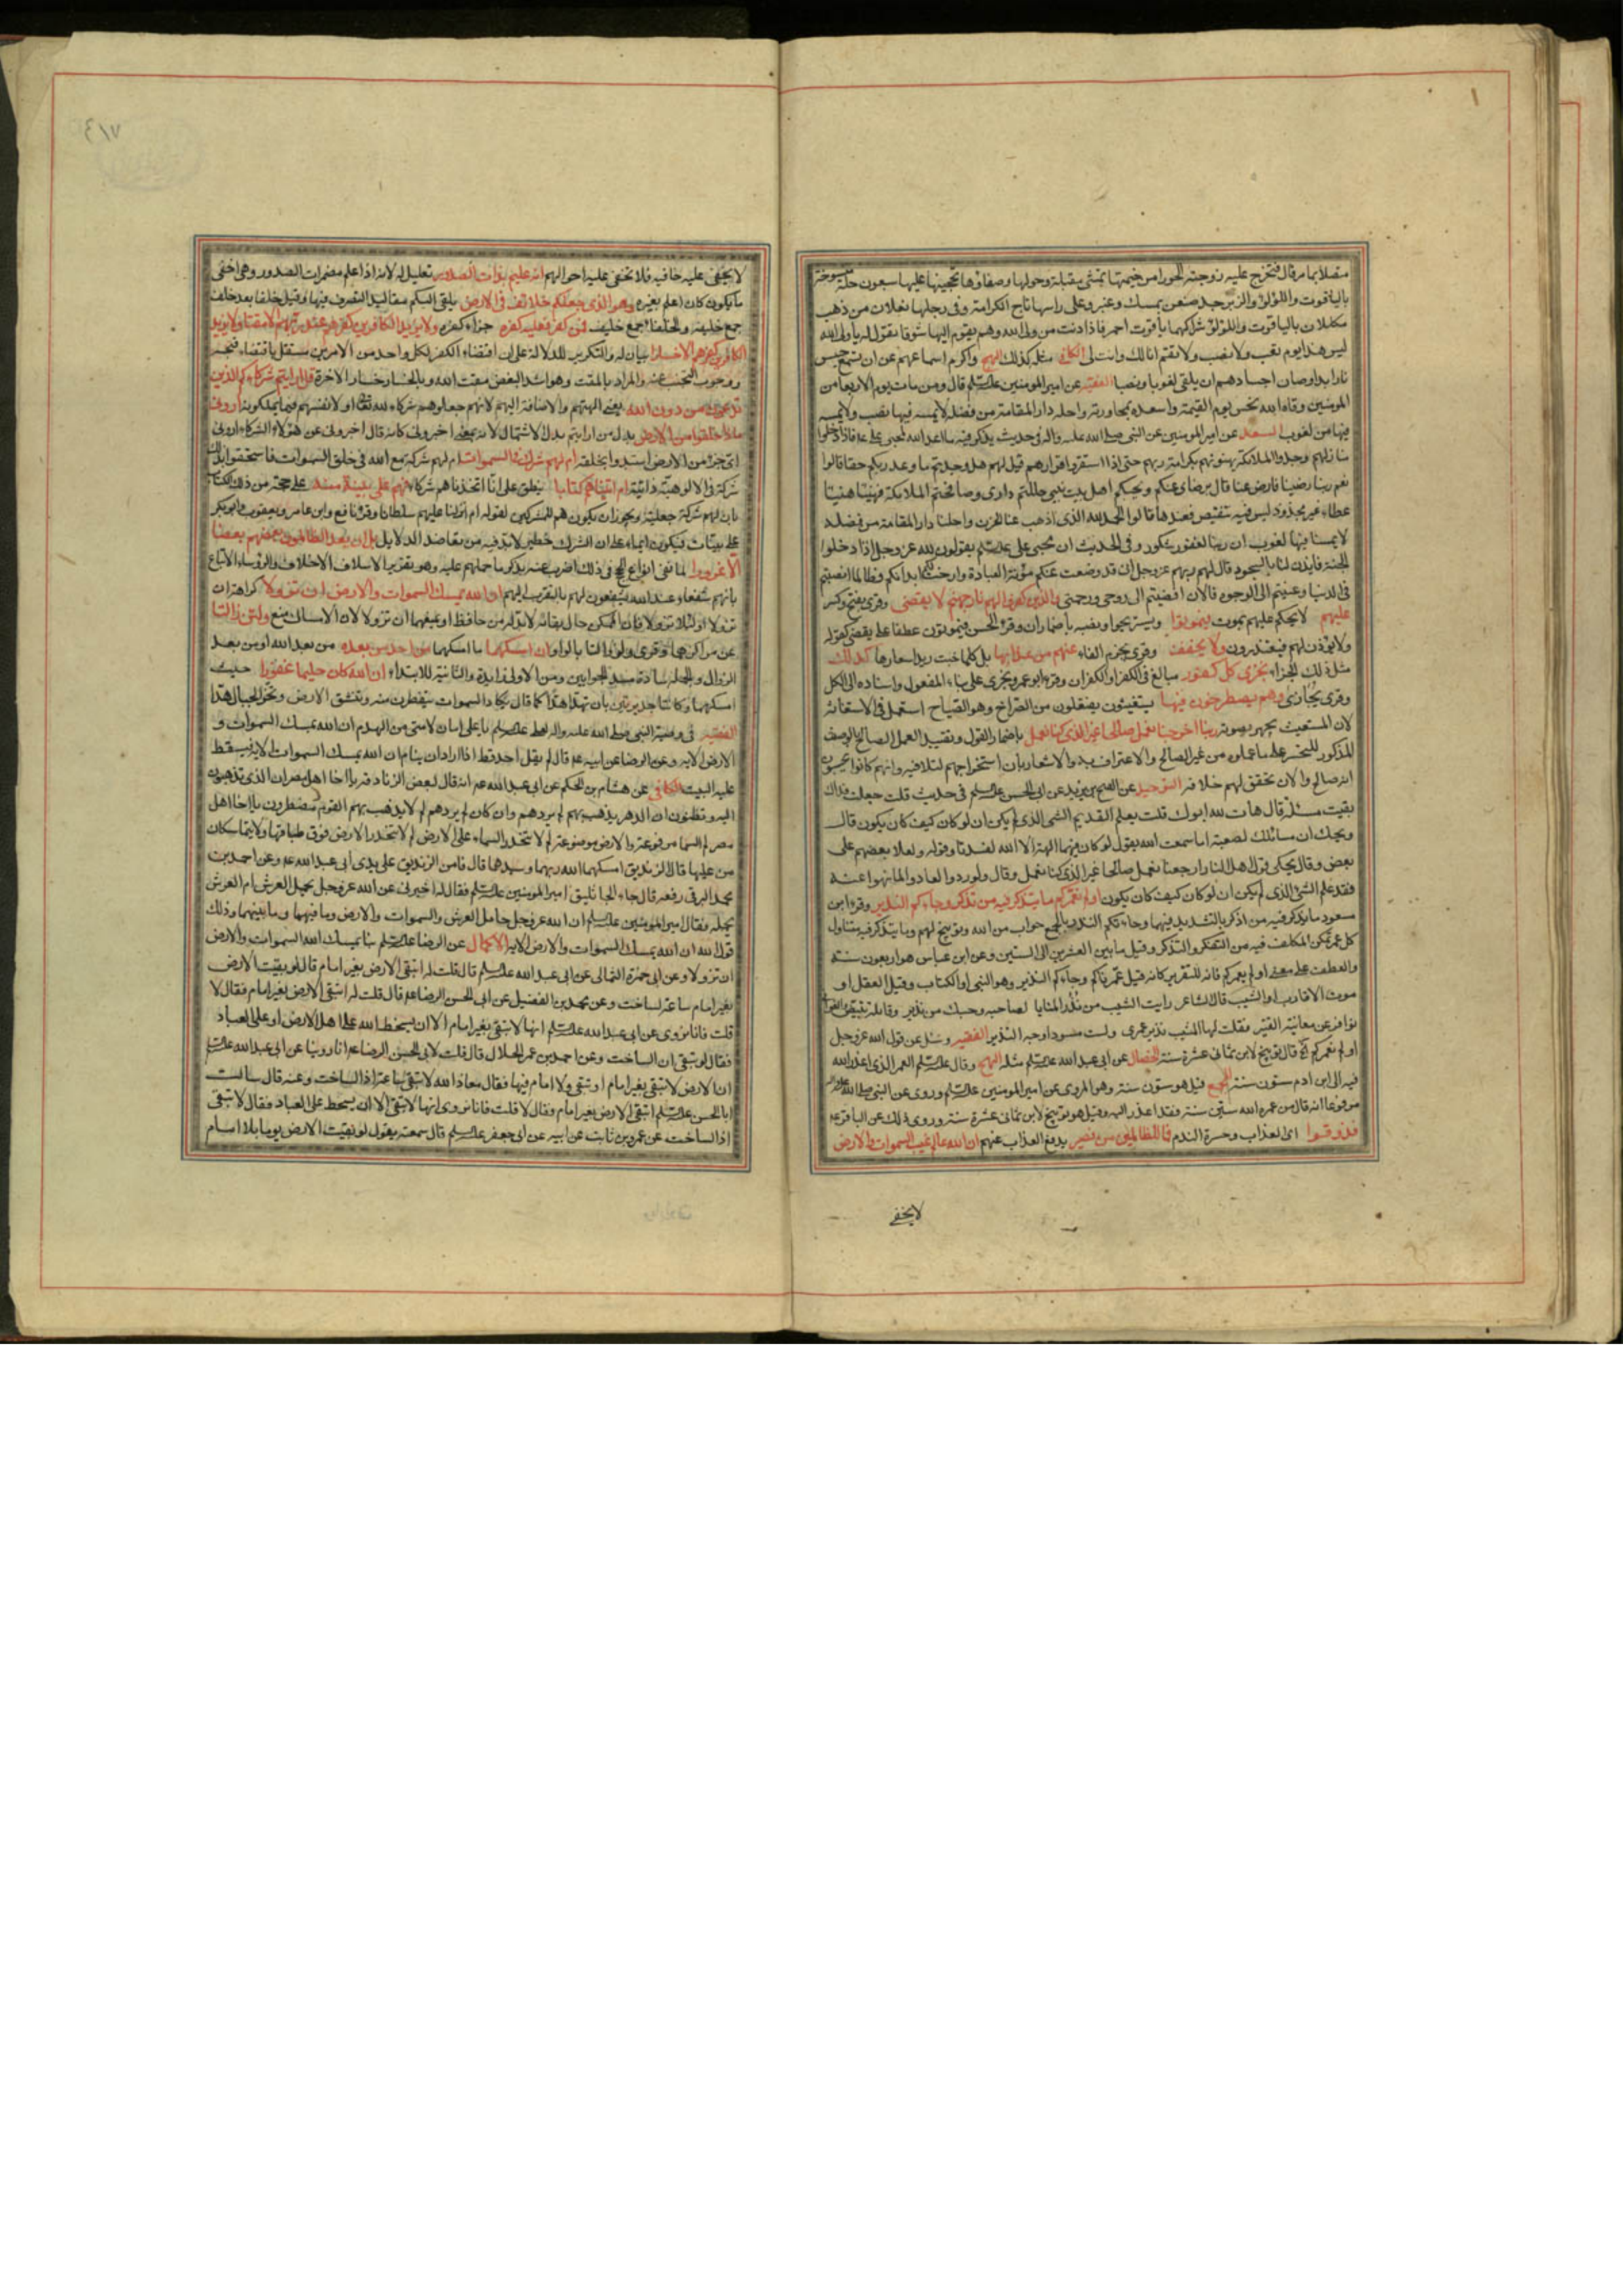 متصلا بما مر قال فتخرج عليه زوجته الحورا من خيمتها تمشي مقبلة وحولها وصفاؤها تحجبها عليها سبعون حلة منسوجة
بالياقوت واللؤلؤ والزبرجد صبغن بمسك وعنبر وعلى راسها تاج الكرامة وفي رجلها نعلان من ذهب
مكللان بالياقوت واللؤلؤ شراكهما ياقوت احمر فاذا ادنت من ولي الله وهم يقوم اليها شوقا تقول له يا ولي الله
ليس هذا يوم تعب ولا نصب ولا تقم انا لك وانت لي الكافي مثله كذلك النهج واكرم اسماعهم عن ان تسمع حسيس
نار ابدا وصان اجسادهم ان يلقى لغوبا ونصبا الفقيه عن امير المومنين عليه السلم قال ومن مات يوم الاربعا من
المومنين وقاه الله نحس يوم القيمة واسعده بمجاورته واحله دار المقامة من فضله لا يمسه فيها نصب ولا يمسه
فيها من لغوب السعد عن امير المومنين عن النبي صلى الله عليه واله في حديث يذكر فيه ما اعد الله لمحبي علي ع فاذا دخلوا
منازلهم وجدوا الملائكة يهنونهم بكرامة ربهم حتى اذا استقروا قرارهم قيل لهم هل وجدتم ما وعد ربكم حقا قالوا
نعم ربنا رضينا فارض عنا قال برضاي عنكم وبحبكم اهل بيت نبيي حللتم داري وصافحتم الملائكة فهنيئا هنيئا
عطاء غير مجذوذ ليس فيه تنغيص فعندها قالوا الحمد لله الذي اذهب عنا الحزن واحلنا دار المقامة من فضله
لا يمسنا فيها لغوب ان ربنا لغفور شكور وفي الحديث ان محبي علي عليه السلم يقولون لله عز وجل اذا دخلوا
الجنة فايذن لنا بالسجود قال لهم ربهم عز وجل اني قد وضعت عنكم مؤنة العبادة وارحت لكم ابدانكم فطالما انصبتم
في الدنيا وعنيتم الي الوجوه فالان افضيتم الى روحي ورحمتي والذين كفروا لهم نار جهنم لا يقضى وقرئ بفتح وكسر
عليهم لا يحكم عليهم بموت فيموتوا ويستريحوا ونصبه باضمار ان وقرأ الحسن فيموتون عطفا على يقضى كقوله
ولا يؤذن لهم فيعتذرون ولا يخفف وقرئ بجزم الفاء عنهم من عذابها بل كلما خبت زيد اسعارها كذلك
مثل ذلك الجزاء نجزى كل كفور مبالغ في الكفر او الكفران وقرء ابو عمرو يجزى على بناء المفعول واسناده الى الكل
وقرئ يجازى وهم يصطرخون فيها يستغيثون يفتعلون من الصراخ وهو الصياح استعمل في الاستغاثة
لان المستغيث يجهر بصوته ربنا اخرجنا نعمل صالحا غير الذي كنا نعمل باضمار القول وتقييد العمل الصالح بالوصف
المذكور للتحسر على ما عملوه من غير الصالح والاعتراف به والاشعار بان استخراجهم لتلافيه وانهم كانوا يحسبون
انه صالح والان تحقق لهم خلافه التوحيد عن الفتح بن يزيد عن ابي الحسن عليه السلم في حديث قلت جعلت فداك
بقيت مسئلة قال هات لله ابوك قلت يعلم القديم الشي الذي لم يكن ان لو كان كيف كان يكون قال
ويحك ان مسائلك لصعبة اما سمعت الله يقول لو كان فيهما الهة الا الله لفسدتا وقوله ولعلا بعضهم على
بعض وقال يحكي قول اهل النار ارجعنا نعمل صالحا غير الذي كنا نعمل وقال ولو ردوا لعادوا لما نهوا عنه
فقد علم الشئ الذي لم يكن ان لو كان كيف كان يكون اولم نعمركم ما يتذكر فيه من تذكر وجاءكم النذير وقرء ابن
مسعود ما يذكر فيه من اذكر بالتشديد فيهما وجاءتكم النذر بالجمع جواب من الله وتوبيخ لهم وما يتذكر فيه متناول
كل عمر تمكن المكلف فيه من التفكر والتذكر وقيل ما بين العشرين الى الستين وعن ابن عباس هو اربعون سنة
والعطف على معنى اولم نعمركم فانه للتقرير كانه قيل عمرناكم وجاءكم النذير وهو النبي او الكتاب وقيل العقل او
موت الاقارب او الشيب قال الشاعر رايت الشيب من نذر المنايا لصاحبه وحسبك من نذير وقائلة تبيض
نوافر عن معاينة القتير فقلت لها المشيب نذير عمري ولست مسودا وجه النذير الفقيه وسئل عن قول الله عز وجل
اولم نعمركم قال توبيخ لابن ثماني عشرة سنة الخصال عن ابي عبد الله عليه السلم مثله النهج وقال عليه السلم العمر الذي اعذر الله
فيه الى ابن ادم ستون سنة المجمع قيل هو ستون سنة وهو المروي عن امير المومنين عليه السلم وروي عن النبي صلى الله عليه واله
مرفوعا انه قال من عمره الله ستين سنة فقد اعذر اليه وقيل هو توبيخ لابن ثماني عشرة سنة وروي ذلك عن الباقر ع
فذوقوا اي العذاب وحسرة الندم فما للظالمين من نصير يدفع العذاب عنهم ان الله عالم غيب السموات والارض
لا يخفى
لا يخفى عليه خافية فلا تخفى عليه احوالهم انه عليم بذات الصدور تعليل له لانه اذا علم مضمرات الصدور وهي اخفى
ما يكون كان اعلم بغيره هو الذي جعلكم خلائف في الارض يلقي اليكم مقاليد التصرف فيها وقيل خلفا بعد خلف
جمع خليفة والخلفاء جمع خليف فمن كفر فعليه كفره جزاء كفره ولا يزيد الكافرين كفرهم عند ربهم الا مقتا ولا يزيد
الكافرين كفرهم الا خسارا بيان له والتكرير للدلالة على ان اقتضاء الكفر لكل واحد من الامرين مستقل باقتضاء قبحه
ووجوب التجنب عنه والمراد بالمقت وهو اشد البغض مقت الله وبالخسار خسار الاخرة قل ارايتم شركاءكم الذين
تدعون من دون الله يعني الهتهم والاضافة اليهم لانهم جعلوهم شركاء لله او لانفسهم فيما يملكونه اروني
ماذا خلقوا من الارض بدل من ارايتم بدل الاشتمال لانه بمعنى اخبروني كانه قال اخبروني عن هؤلاء الشركاء اروني
اي جزء من الارض استبدوا بخلقه ام لهم شرك في السموات ام لهم شركة مع الله في خلق السموات فاستحقوا بذلك
شركة في الالوهية ذاتية ام اتيناهم كتابا ينطق على انا اتخذناهم شركاء فهم على بينة منه على حجة من ذلك الكتاب
بان لهم شركة جعلية ويجوز ان يكون هم للمشركين لقوله ام انزلنا عليهم سلطانا وقرء نافع وابن عامر ويعقوب وابو بكر
على بينات فيكون ايماء على ان الشرك خطير لابد فيه من تعاضد الدلايل بل ان يعد الظالمون بعضهم بعضا
الا غرورا لما نفى انواع الحجج في ذلك اضرب عنه بذكر ما حملهم عليه وهو تقرير الاسلاف الاخلاف والرؤساء الاتباع
بانهم شفعاء عند الله يشفعون لهم بالتقرب اليهم ان الله يمسك السموات والارض ان تزولا كراهة ان
تزولا او لئلا تزولا فان الممكن حال بقائه لابد له من حافظ او يمنعهما ان تزولا لان الامساك منع ولئن زالتا
عن مراكزهما وقرئ ولو زالتا بالواو ان امسكهما ما امسكهما من احد من بعده من بعد الله او من بعد
الزوال والجملة سادة مسد الجوابين ومن الاولى زايدة والثانية للابتداء ان الله كان حليما غفورا حيث
امسكهما وكانتا جديرتين بان تهدا هدا كما قال تكاد السموات يتفطرن منه وتنشق الارض وتخر الجبال هدا
الفقيه في وصية النبي صلى الله عليه واله لعلي عليه السلم يا علي امان لامتي من الهدم ان الله يمسك السموات و
الارض الاية وعن الرضا عن ابيه ع قال لم يقل احد قط اذا اراد ان ينام ان الله يمسك السموات الاية فيسقط
عليه البيت الكافي عن هشام بن الحكم عن ابي عبد الله ع انه قال لبعض الزنادقة يا اخا اهل مصر ان الذي تذهبون
اليه وتظنون ان الدهر يذهب بهم لم يردهم وان كان لم يردهم لم لا يذهب بهم القوم مضطرون يا اخا اهل
مصر لم السما مرفوعة والارض موضوعة لم لا تنحدر السماء على الارض لم لا تنحدر الارض فوق طباقها ولا يتماسكان
من عليها قال الزنديق امسكهما الله ربهما وسيدهما قال فامن الزنديق على يدي ابي عبد الله ع وعن احمد بن
محمد البرقي رفعه قال جاء الجاثليق امير المومنين عليه السلم فقال له اخبرني عن الله عز وجل يحمل العرش ام العرش
يحمله فقال امير المومنين عليه السلم ان الله عز وجل حامل العرش والسموات والارض وما فيهما وما بينهما وذلك
قول الله ان الله يمسك السموات والارض الاية الاكمال عن الرضا عليه السلم بنا يمسك الله السموات والارض
ان تزولا وعن ابي حمزة الثمالي عن ابي عبد الله عليه السلم قال قلت له اتبقى الارض بغير امام قال لو بقيت الارض
بغير امام ساعة لساخت وعن محمد بن الفضيل عن ابي الحسن الرضا ع قال قلت له اتبقى الارض بغير امام فقال لا
قلت فانا نروي عن ابي عبد الله عليه السلم انها لا تبقى بغير امام الا ان يسخط الله على اهل الارض او على العباد
فقال لو تبقى ان الساخت وعن احمد بن عمر الحلال قال قلت لابي الحسن الرضا ع انا روينا عن ابي عبد الله عليه السلم
ان الارض لا تبقى بغير امام او تبقى ولا امام فيها فقال معاذ الله لا تبقى ساعة اذا لساخت وعنه قال سالت
ابا الحسن عليه السلم اتبقى الارض بغير امام فقال لا قلت فانا نروي انها لا تبقى الا ان يسخط على العباد فقال لا تبقى
اذا لساخت عن عمرو بن ثابت عن ابيه عن ابي جعفر عليه السلم قال سمعته يقول لو بقيت الارض يوما بلا امام